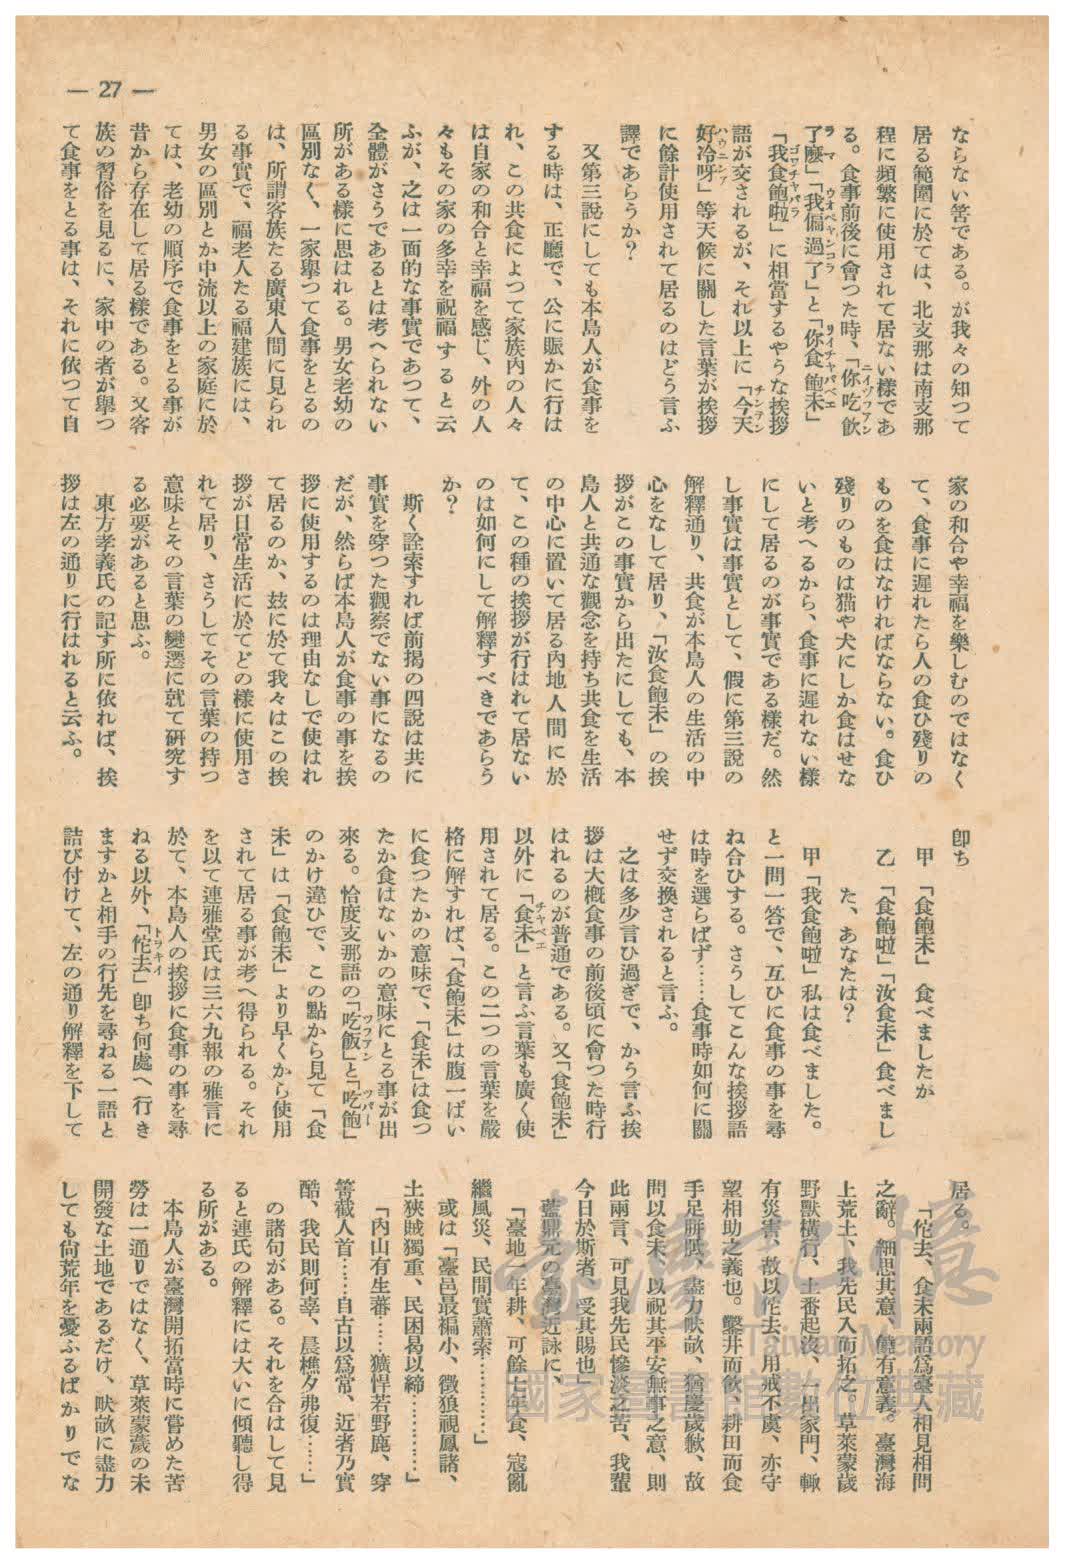 — 27 —
ならない筈である。が我々の知つて
居る範圍に於ては、北支那は南支那
程に頻繁に使用されて居ない樣であ
る。食事前後に會つた時、「你吃飮
了麽」「我偏過了」と「你食飽未」
「我食飽啦」に相當するやうな挨拶
語が交されるが、それ以上に「今天
好冷呀」等天候に關した言葉が挨拶
に餘計使用されて居るのはどう言ふ
譯であらうか？
又第三說にしても本島人が食事を
する時は、正廳で、公に賑かに行は
れ、この共食によつて家族內の人々
は自家の和合と幸福を感じ、外の人
々もその家の多幸を祝福すると云
ふが、之は一面的な事實であつて、
全體がさうであるとは考へられない
所がある樣に思はれる。男女老幼の
區別なく、一家擧つて食事をとるの
は、所謂客族たる廣東人間に見られ
る事實で、福老人たる福建族には、
男女の區別とか中流以上の家庭に於
ては、老幼の順序で食事をとる事が
昔から存在して居る樣である。又客
族の習俗を見るに、家中の者が擧つ
て食事をとる事は、それに依つて自
家の和合や幸福を樂しむのではなく
て、食事に遲れたら人の食ひ殘りの
ものを食はなければならない。食ひ
殘りのものは猫や犬にしか食はせな
いと考へるから、食事に遲れない樣
にして居るのが事實である樣だ。然
し事實は事實として、假に第三說の
解釋通り、共食が本島人の生活の中
心をなして居り、「汝食飽未」の挨
拶がこの事實から出たにしても、本
島人と共通な觀念を持ち共食を生活
の中心に置いて居る內地人間に於
て、この種の挨拶が行はれて居ない
のは如何にして解釋すべきであらう
か？
斯く詮索すれば前揭の四說は共に
事實を穿つた觀察でない事になるの
だが、然らば本島人が食事の事を挨
拶に使用するのは理由なしで使はれ
て居るのか、玆に於て我々はこの挨
拶が日常生活に於てどの樣に使用さ
れて居り、さうしてその言葉の持つ
意味とその言葉の變遷に就て硏究す
る必要があると思ふ。
東方孝義氏の記す所に依れば、挨
拶は左の通りに行はれると云ふ。
卽ち
甲　「食飽未」食べましたか
乙　「食飽啦」「汝食未」食べまし
た、あなたは？
甲「我食飽啦」私は食べました。
と一問一答で、互ひに食事の事を尋
ね合ひする。さうしてこんな挨拶語
は時を選らばず……食事時如何に關
せず交換されると言ふ。
之は多少言ひ過ぎで、かう言ふ挨
拶は大槪食事の前後頃に會つた時行
はれるのが普通である。又「食飽未」
以外に「食未」と言ふ言葉も廣く使
用されて居る。この二つの言葉を嚴
格に解すれば、「食飽未」は腹一ぱい
に食つたかの意味で、「食未」は食つ
たか食はないかの意味にとる事が出
來る。恰度支那語の「吃飯」と「吃飽」
のかけ違ひで、この點から見て「食
未」は「食飽未」より早くから使用
されて居る事が考へ得られる。それ
を以て連雅堂氏は三六九報の雅言に
於て、本島人の挨拶に食事の事を尋
ねる以外、「佗去」卽ち何處へ行き
ますかと相手の行先を尋ねる一語と
詰び付けて、左の通り解釋を下して
居る。
「佗去、食未兩語爲臺人相見相問
之辭。細思其意、饒有意義。臺灣海
上荒土、我先民入而拓之、草萊蒙歲
野獸橫行、土番起沒、一出家門、輙
有災害、故以佗去、用戒不虞、亦守
望相助之義也。鑿井而飮、耕田而食
手足胼胝、盡力畎畝、猶慶歲歉、故
問以食未、以祝其平安無事之意、則
此兩言、可見我先民慘淡之苦、我輩
今日於斯者、受其賜也」
藍鼎元の臺灣近詠に、
「臺地一年耕、可餘七年食、寇亂
繼風災、民間實蕭索…………」
或は「臺邑最褊小、徵狼視鳳諸、
土狹賊獨重、民困曷以締…………」
「內山有生蕃……獷悍若野鹿、穿
箐截人首……自古以爲常、近者乃實
酷、我民則何辜、晨樵夕弗復……」
の諸句がある。それを合はして見
ると連氏の解釋には大いに傾聽し得
る所がある。
本島人が臺灣開拓當時に嘗めた苦
勞は一通りではなく、草萊蒙歲の未
開發な土地であるだけ、畎畝に盡力
しても尙荒年を憂ふるばかりでな
臺灣記憶
Taiwan Memory
國家圖書館數位典藏